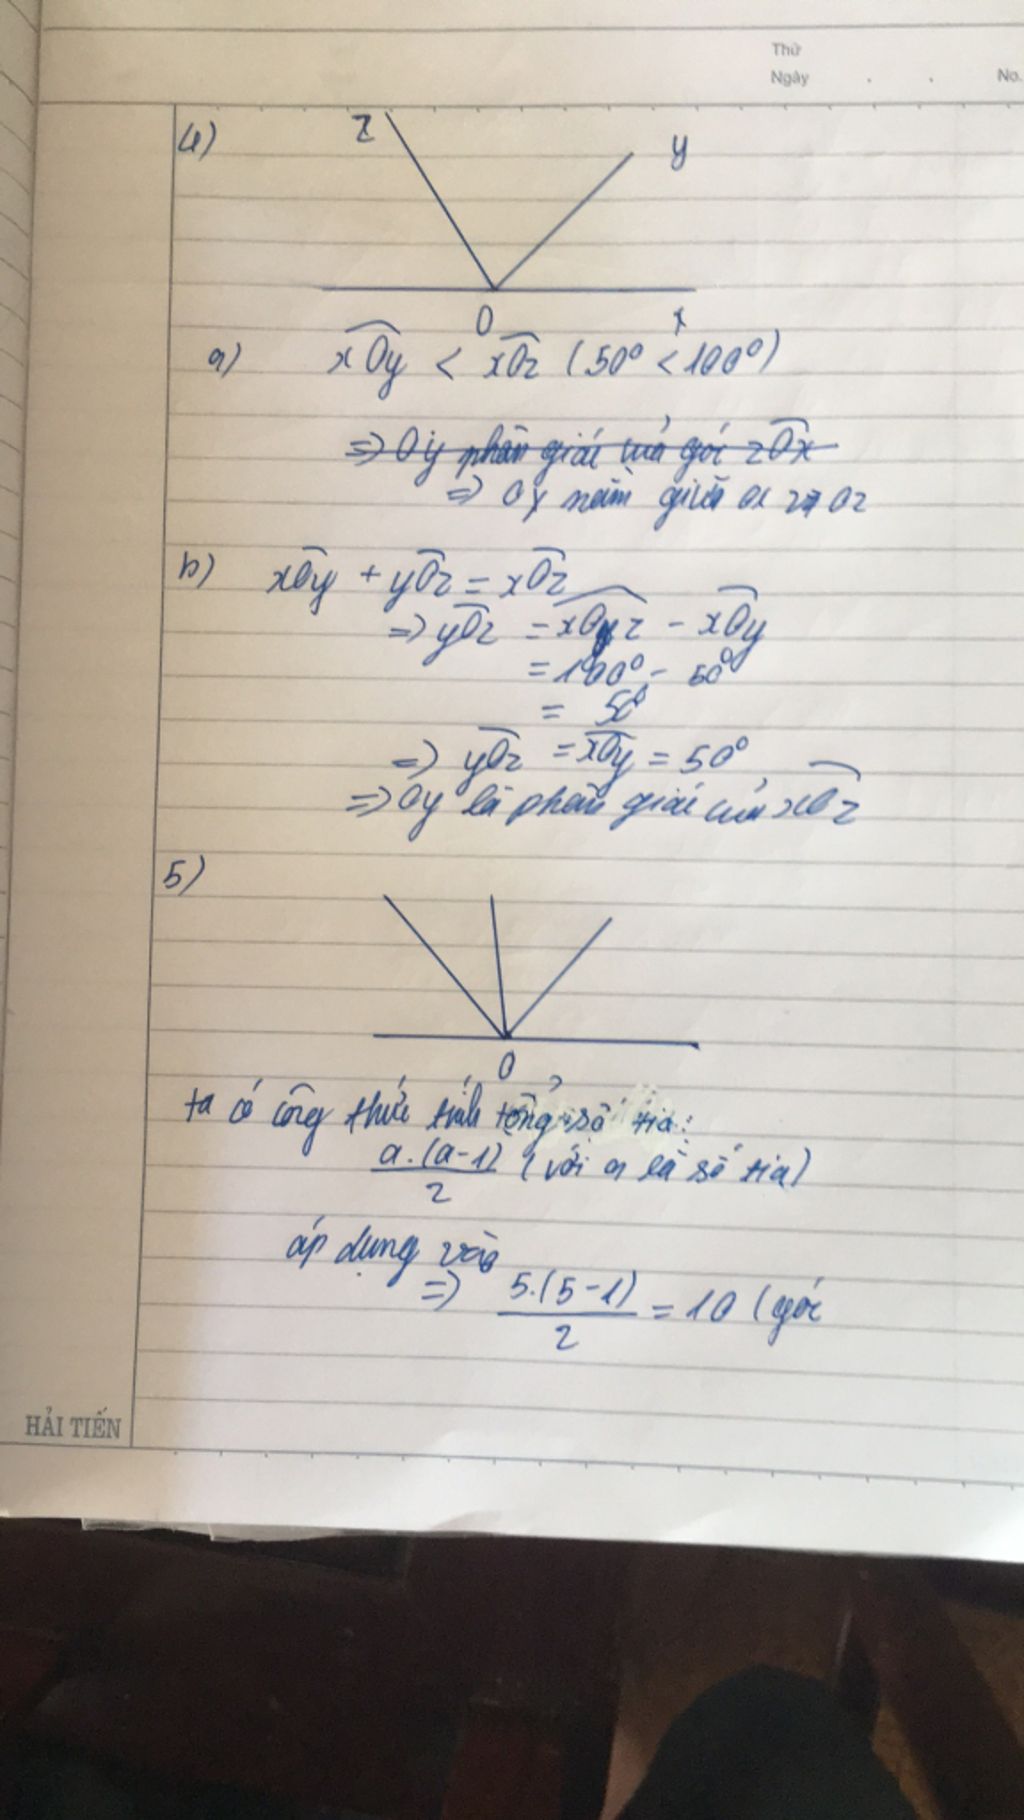 Thứ
Ngày . . No.
4)
z y
O x
a) xOy < xOz (50° < 100°)
=> Oy phân giác của góc zOx
=> Oy nằm giữa Ox và Oz
b) xOy + yOz = xOz
=> yOz = xOz - xOy
= 100° - 50°
= 50°
=> yOz = xOy = 50°
=> Oy là phân giác của xOz
5)
O
ta có công thức tính tổng số tia:
a.(a-1)/2 (với a là số tia)
áp dụng vào
=> 5.(5-1)/2 = 10 (góc
HẢI TIẾN